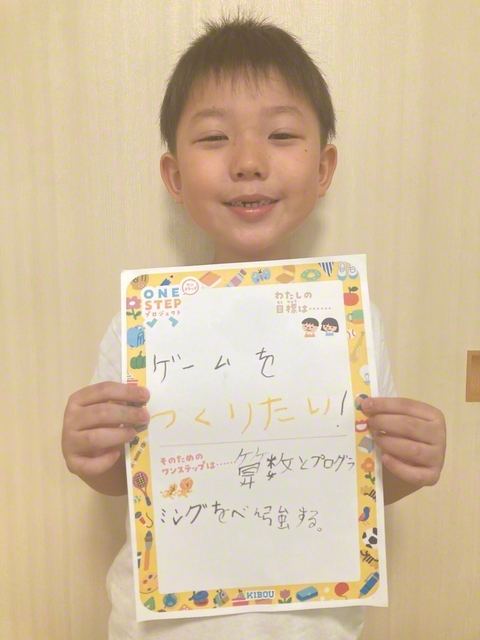 ONE
STEP
プロジェクト
わたしの
目標は……
ゲームを
つくりたい!
そのための
ワンステップは……
算数とプログラ
ミングをべん強する。
KIBOU